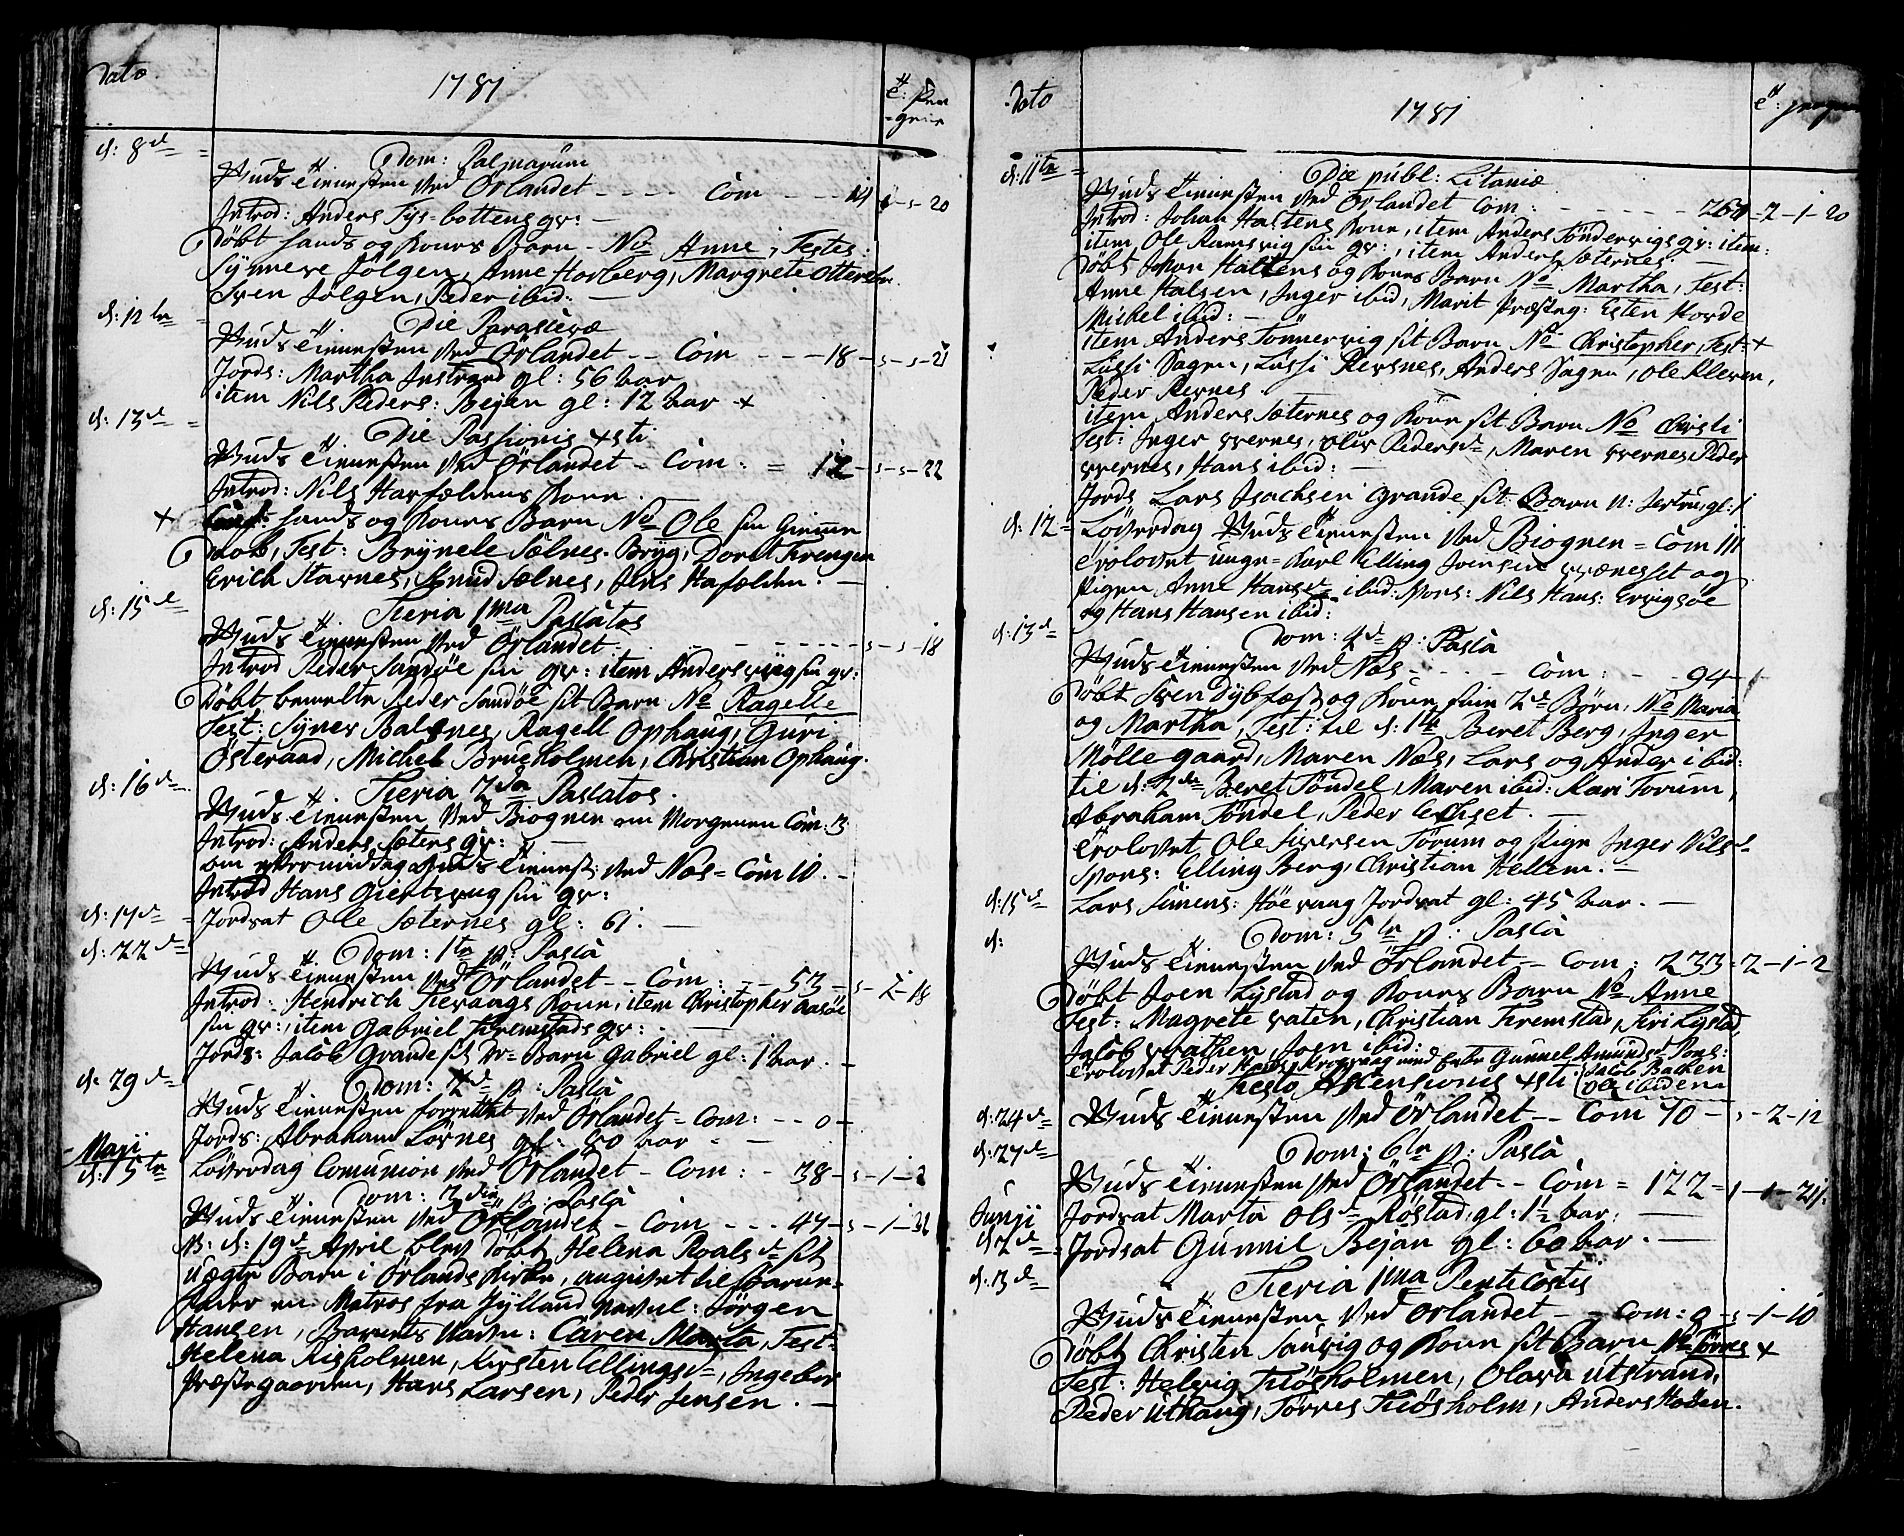 Dato 1781
d: 8de Dom: Palmarum
Guds Tienesten ved Örlandet - - - - Com - - - 14 - s - 20
Introd: Anders Tys-bottens qv: -
Döbt hands og kones Barn - No Anne, Testes:
Synneve Jölgen, Anne Horberg, Margrete Ottersbo
Sven Jölgen, Peder ibid: -
d: 12te Die Parascevæ
Guds Tienesten ved Örlandet - - Com - - - 18 - s - s - 21
Jords: Martha Indstrand gl: 56 aar
item Nils Peders: Bejan gl: 12 aar +
d: 13de Die Passionis xsti
Guds Tienesten ved Örlandet - Com: = 12 - s - s - 22
Introd: Nils Harfældens kone.
+ hands og kones Barn No Ole
Daab, Test: Brynele Sælnes, Doret
Erich Starnes, Knud Sælnes, Jens Hafælden. -
d: 15de Feria 1ma Pascatos
Guds Tienesten ved Örlandet - - - - - - s - s - 18
Introd Peder Sandöe sin qv: item Anders sin qv:
Döbt bemelte Peder Sandöe sit Barn No Ragelle
Test: Synev Balsnes, Ragell Ophaug, Guri
Österaad, Michel Brueholmen, Christian Ophaug.
d: 16de Feria 2da Pascatos.
Guds Tienesten ved Biognen om Morgenen Com: 3
Introd: Anders Sæters qv: -
om Formiddag Guds Tienest: ved Næs = Com 10. -
Introd Hans sin qv:
d: 17de Jordsat Ole Sæternes gl: 61. -
d: 22de Dom: 1te p: Pasca
Guds Tienesten ved Örlandet - - Com: - - 53 - s - 2 - 18
Introd: Hendrich kone, item Christopher Aasöe
sin qv:, item Gabriel Kremstads qv: -
Jords: Jacob Grande sit Barn Gabriel gl: 1 aar. -
d: 29de Dom: 2de p: Pasca
Guds Tienesten forrettet ved Örlandet = Com: - - 0 -
Jords: Abraham Lövnes gl: 80 aar - -
Maji
d: 5te Löverdag Comunion ved Örlandet - Com: - 38 - s - 1 - 2
Dom: 3die p: Pasca
Guds Tienesten ved Örlandet - Com - - - 47 - s - 1 -
N: d: 19de April blev Döbt Helena Roalsd sit
Uægte Barn i Örlands Kirke, angivet til Barne-
Fader en Matros fra Jylland navnl: Jörgen
Hansen, Barnets Navn: Caren Marta, Test:
Helena Risholmen, Kirsten Ellingsd, Ingebor
Præstegaarden, Hans Larsen, Peder Jensen. -
Dato 1781
d: 11te Die publ: Litaniæ
Guds Tienesten ved Örlandet Com: - - - - - 261 - 2 - 1 - 20
Introd: Johan Hattens kone, item Anders Töndervigs qv: item
item Ole Ramsvig sin qv:, item Anders Sæternes
Döbt Johan Hattens og kones Barn No Martha, Test:
Anne Halsen, Inger ibid, Marit Præsteg: Esten Horde
Michel ibid: -
item Anders Tönnervig sit Barn No Christopher, Test: +
Lussi Sagen, Lussi Revsnes, Anders Sagen, Ole Kleven,
Peder Revnes
item Anders Sæternes og kone sit Barn No Christi
Test: Inger Pedersd, Maren Peder
Hans ibid: -
Jords Lars Isachsen Grande sit Barn
d: 12 = Löverdag Guds Tienesten ved Biognen = Com 111
Trolovet unge-karl Elling Joensen og
Pigen Anne Hansd ibid: spons: Nils Hans:
og Hans Hansen ibid:
d: 13de Dom: 4de p: Pasca
Guds Tienesten ved Næs - - - Com: - - 94 -
Döbt Sven Dybfæst og kone sine 2de Börn, No Maria
og Martha, Test: til d: 1te Beret Berg, Inger
Möllegaard, Maren Næs, Lars og Ander ibid:
til d: 2de Beret Töndel, Maren ibid: Kari Torum,
Abraham Töndel, Peder Lechset. -
Trolovet Ole Siversen Törum og Pige Inger Nilsd
Spons: Elling Berg, Christian Hellem. -
d: 15de Lars Simens: Höevaag Jordsat gl: 45 aar. -
d: Dom: 5te p: Pasca
Guds Tienesten ved Örlandet - Com: 233 = 2 - 1 - 2
Döbt Joen Lystad og kones Barn No Anne
Test: Magrete Christian Kremstad, Siri Lystad,
Jacob Joen ibid:
Trolovet Peder med Enke Gunnel Amundsd Spons:
Jacob Bachen
Ole ibidem
Festo Ascensionis xsti
d: 24de Guds Tienesten ved Örlandet - Com 70 - s - 2 - 12
d: 27de Dom: 6te p: Pasca
Guds Tienesten ved Örlandet - - Com = 122 - 1 - 1 - 21
Jordsat Marta Olsd Röstad, gl: 1½ aar.
Junji
d: 2de Jordsat Gunnil Bejan gl: 60 aar. -
d: 3de Feria 1ma Penticostis
Guds Tienesten ved Örlandet - - Com: 0 - s - 1 - 10
Döbt Christen Sauvig og kone sit Barn No Törres +
Test: Helvig Kiösholmen, Olava Utstrand,
Peder Uthaug, Törres Kiösholm, Anders Hoven.